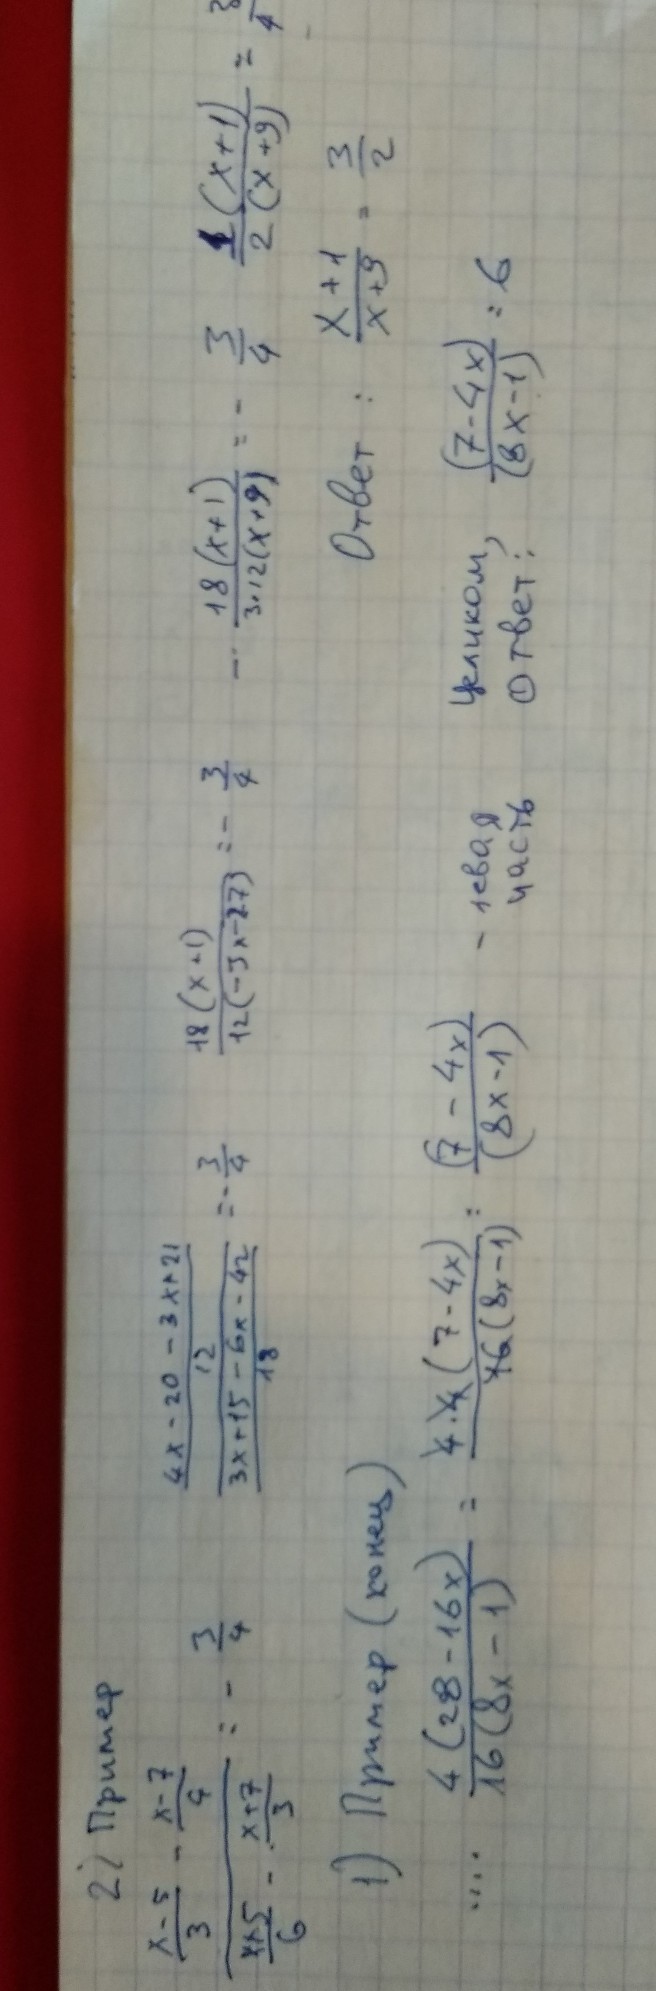 2) Пример
(x-5)/3 - (x-7)/4 / (x+5)/6 - (x+7)/3 = - 3/4 (4x-20-3x+21)/12 / (3x+15-6x-42)/18 = - 3/4 18(x+1)/12(-3x-27) = - 3/4 - 18(x+1)/3·12(x+9) = - 3/4 1(x+1)/2(x+9) = 3/4
Ответ: x+1/x+9 = 3/2
1) Пример (конец)
.... 4(28-16x)/16(8x-1) = 4·4(7-4x)/16(8x-1) = (7-4x)/(8x-1) - левая часть
Целиком,
Ответ: (7-4x)/(8x-1) = 6